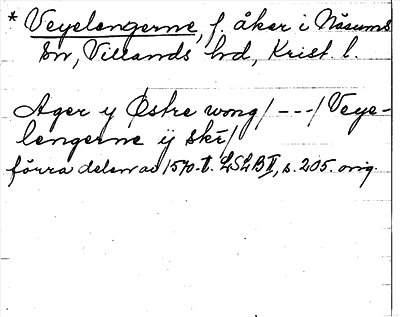 * Veyelengerne, f. åker i Näsums
sn, Villands hd, Krist. l.
Ager y Østre wong/---/Veye-
lengerne ij skē/
förra delen av 1570-t. LSLB II, s. 205. orig.